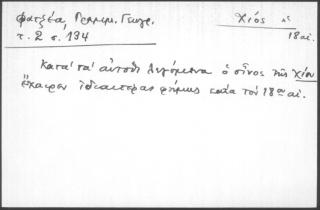 Φατζέα, Γραμμ. Γεωργ. Χίος κ
τ. 2 σ. 134 18 αἰ.
Κατὰ τὰ αὐτόθι λεγόμενα ὁ οἶνος τῆς Χίου
ἔχαιρεν ἰδιαιτέρας φήμης κατὰ τὸν 18ον αἰ.